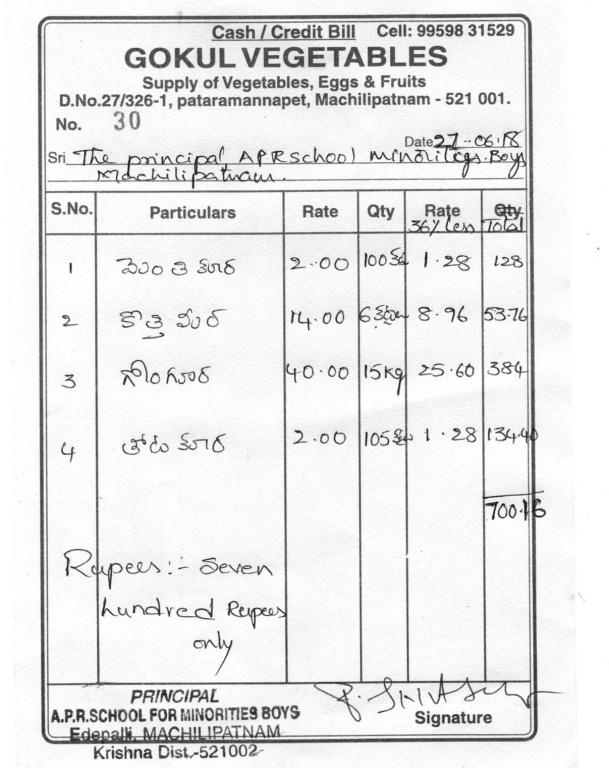 Cash / Credit Bill Cell: 99598 31529
GOKUL VEGETABLES
Supply of Vegetables, Eggs & Fruits
D.No.27/326-1, pataramannapet, Machilipatnam - 521 001.
No. 30
Date 27-06-18
Sri The principal APR school minorities Boys
Machilipatnam.
S.No. Particulars Rate Qty Rate Qty
36% less Total
1 మెంతి కూర 2.00 100 1.28 128
2 కొత్తిమీర 14.00 6 కట్టలు 8.96 53.76
3 గోంగూర 40.00 15kg 25.60 384
4 తోటకూర 2.00 105 1.28 134.40
700.16
Rupees:- Seven
hundred Rupees
only
PRINCIPAL
A.P.R.SCHOOL FOR MINORITIES BOYS
Edepalli, MACHILIPATNAM
Krishna Dist.-521002
Signature